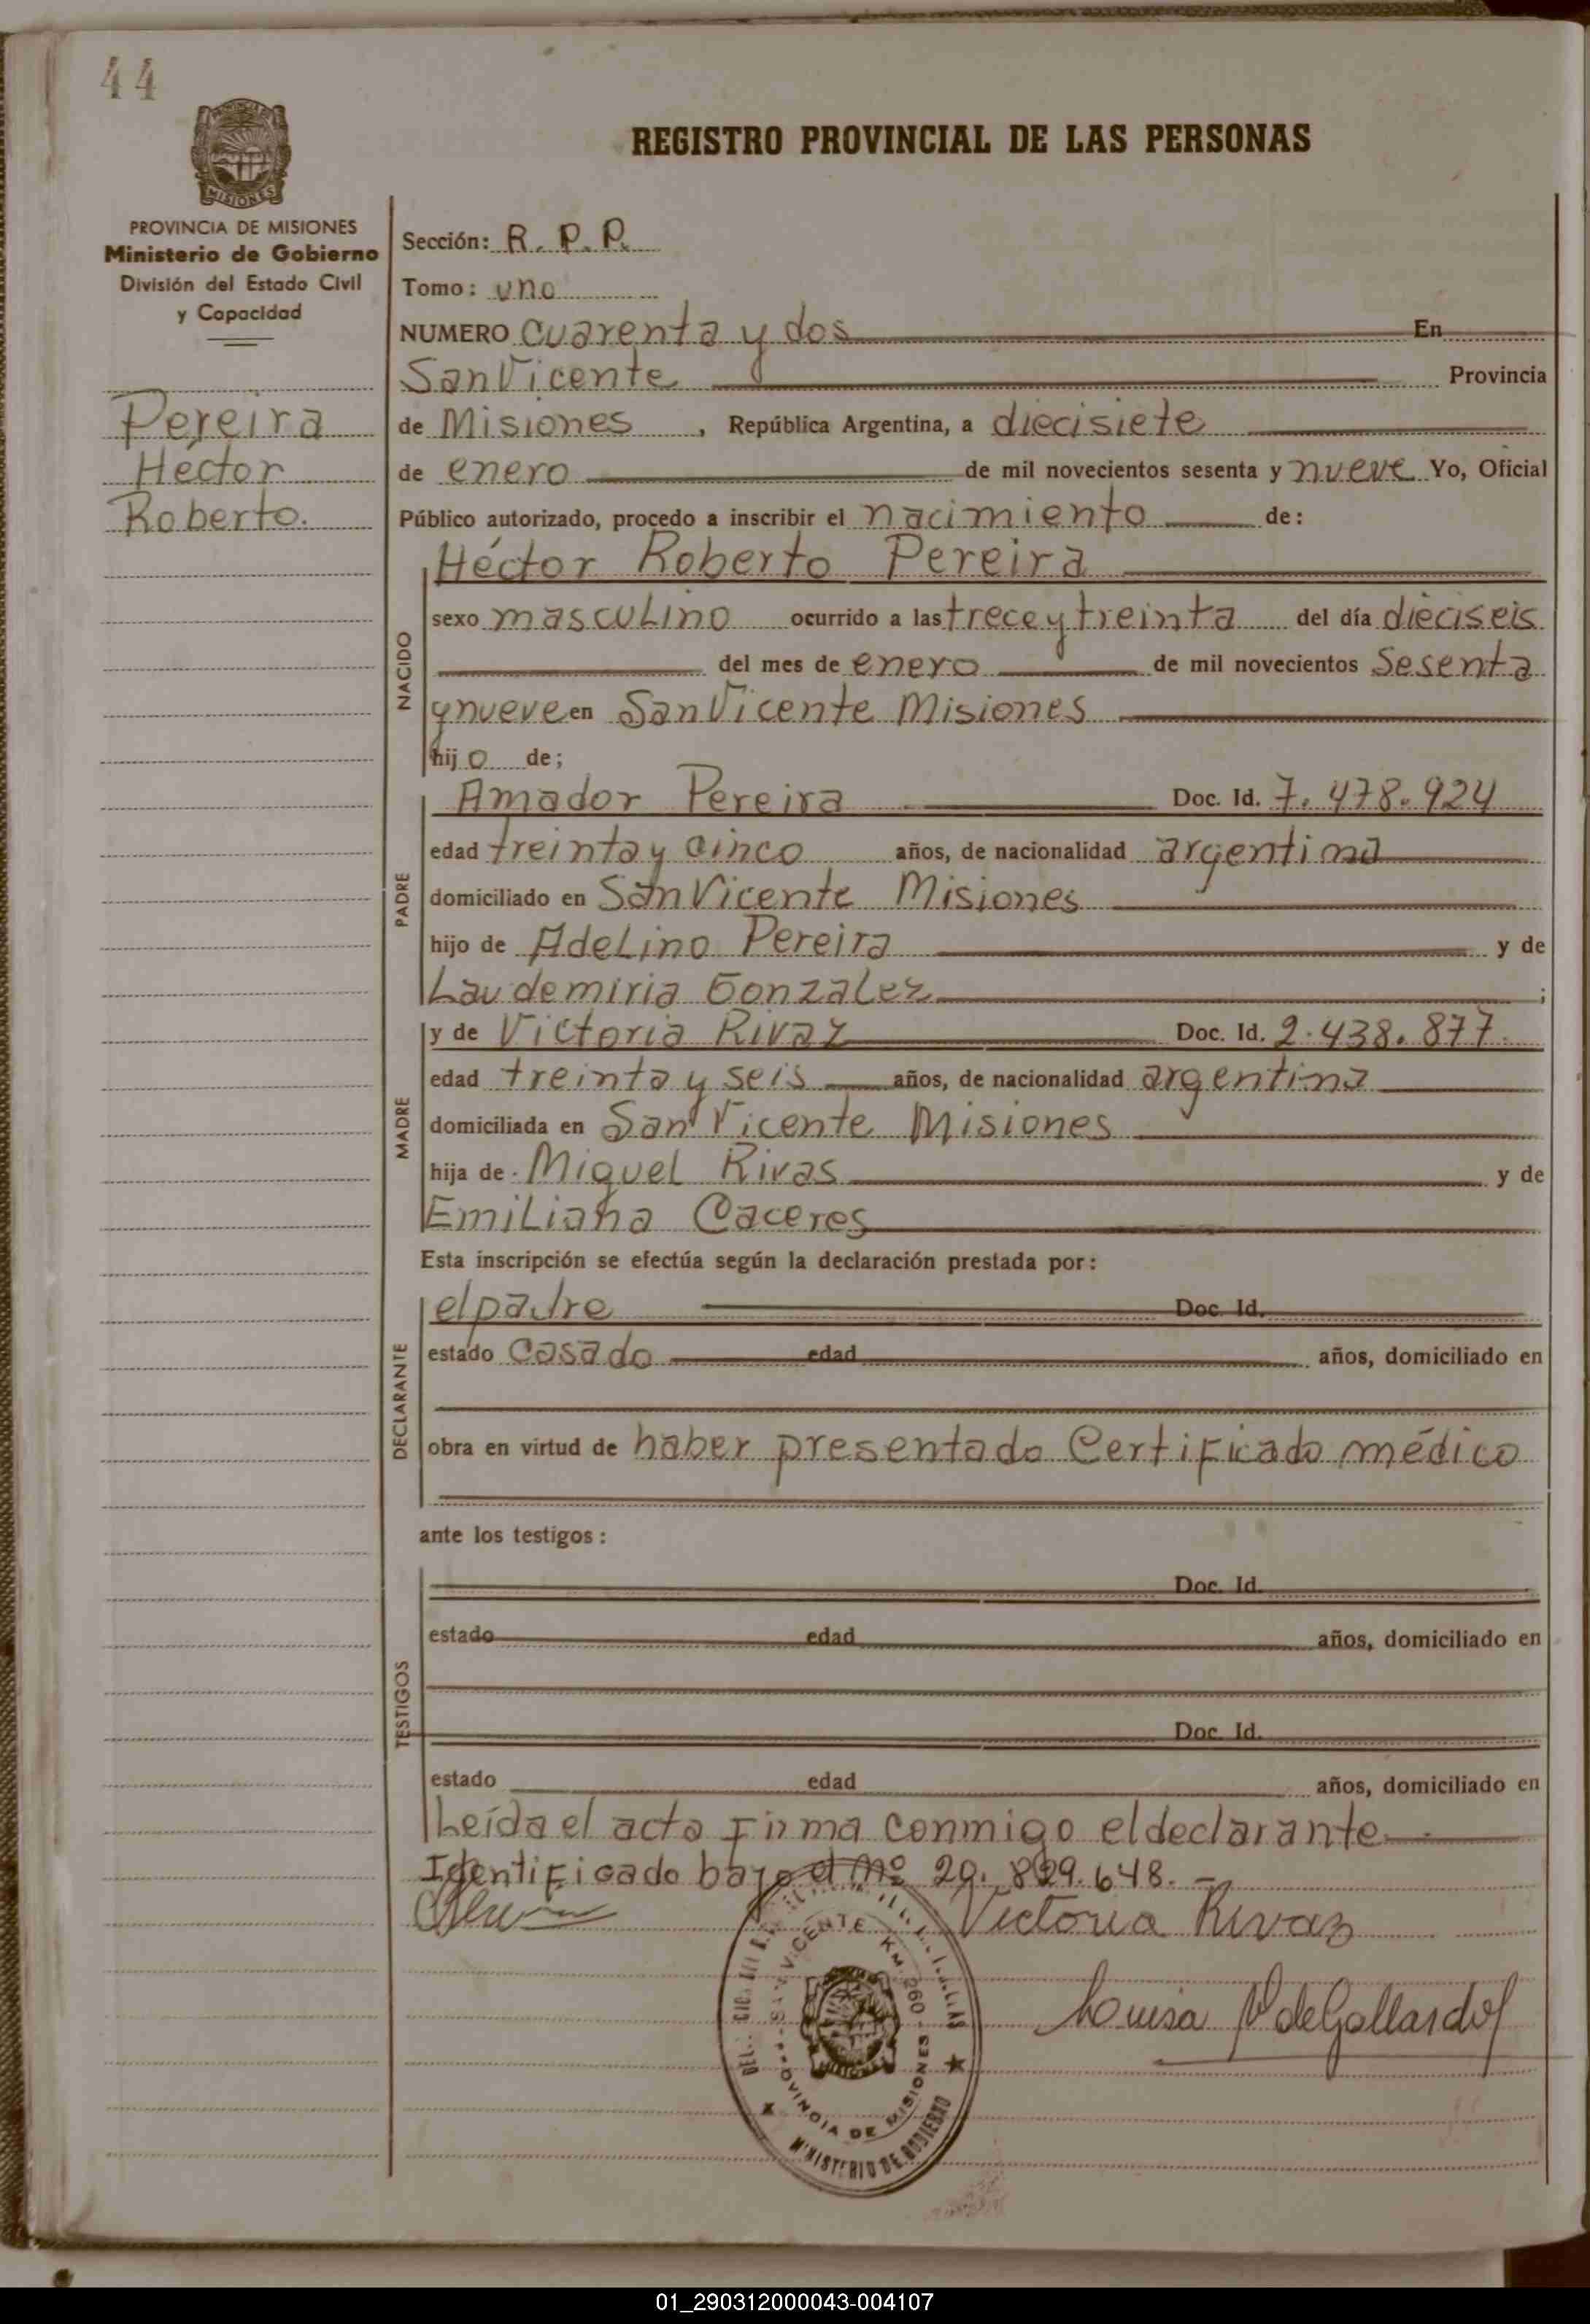 44
REGISTRO PROVINCIAL DE LAS PERSONAS
MISIONES
PROVINCIA DE MISIONES
Ministerio de Gobierno
División del Estado Civil
y Capacidad
Pereira
Héctor
Roberto.
Sección: R. P. P.
Tomo: uno
NUMERO cuarenta y dos En
San Vicente Provincia
de Misiones, República Argentina, a diecisiete
de enero de mil novecientos sesenta y nueve Yo, Oficial
Público autorizado, procedo a inscribir el nacimiento de:
NACIDO
Héctor Roberto Pereira
sexo masculino ocurrido a las trece y treinta del día dieciseis
del mes de enero de mil novecientos sesenta
y nueve en San Vicente Misiones
hijo de;
PADRE
Amador Pereira Doc. Id. 7.478.924
edad treinta y cinco años, de nacionalidad argentina
domiciliado en San Vicente Misiones
hijo de Adelino Pereira y de
Laudemiria Gonzalez ;
MADRE
y de Victoria Rivaz Doc. Id. 2.438.877.
edad treinta y seis años, de nacionalidad argentina
domiciliada en San Vicente Misiones
hija de Miguel Rivas y de
Emiliana Caceres
Esta inscripción se efectúa según la declaración prestada por:
DECLARANTE
el padre Doc. Id.
estado casado edad años, domiciliado en
obra en virtud de haber presentado Certificado médico
ante los testigos:
TESTIGOS
Doc. Id.
estado edad años, domiciliado en
Doc. Id.
estado edad años, domiciliado en
Leída el acta Firma conmigo el declarante
Identificado bajo el Nº 20.829.648.-
Victoria Rivaz
Louisa de Gallardo
VICENTE KM. 260
PROVINCIA DE MISIONES
MINISTERIO DE GOBIERNO
01_290312000043-004107